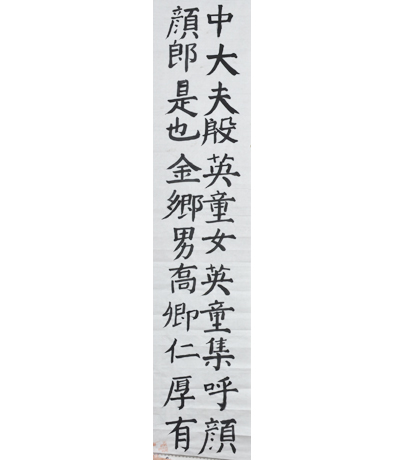 中大夫殷英童女英童集呼顔
顔郎是也金郷男高卿仁厚有